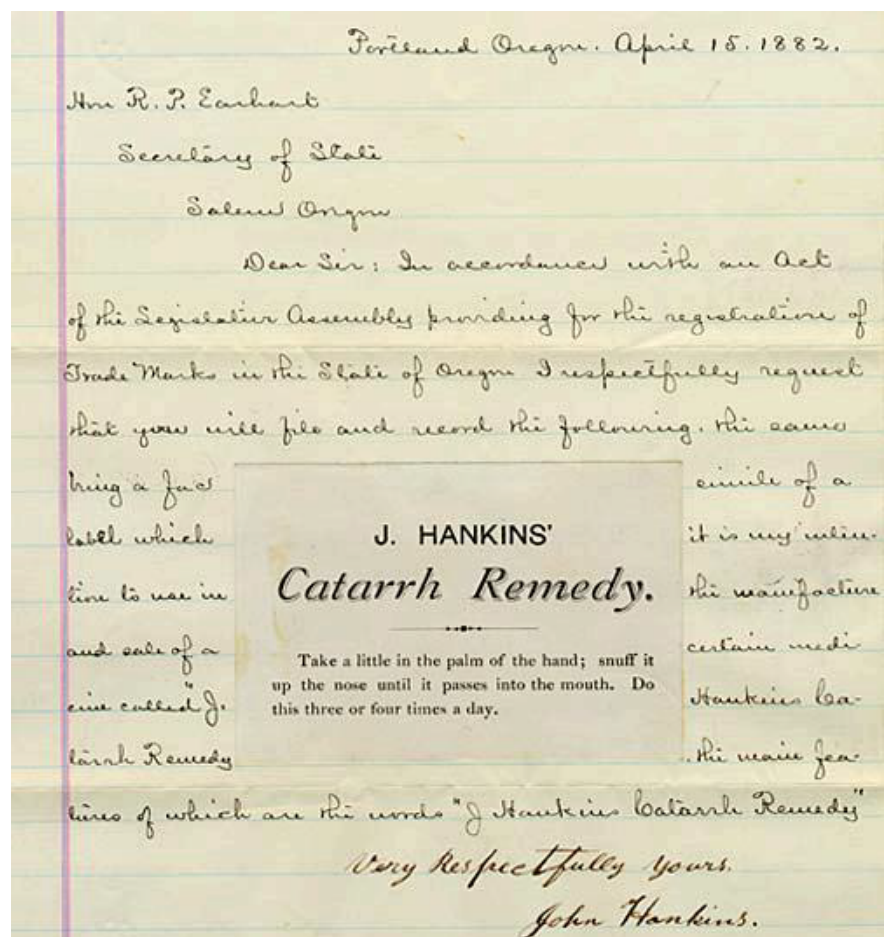 Portland Oregon. April 15. 1882.
Hon R. P. Earhart
Secretary of State
Salem Oregon
Dear Sir: In accordance with an Act
of the Legislative Assembly providing for the registration of
Trade Marks in the State of Oregon I respectfully request
that you will file and record the following. the same
being a fac simile of a
label which it is my inten-
tion to use in the manufacture
and sale of a certain medi
cine called "J. Hankins Ca-
tarrh Remedy . the main fea-
tures of which are the words "J Hankins Catarrh Remedy"
Very Respectfully Yours.
John Hankins.
J. HANKINS'
Catarrh Remedy.
Take a little in the palm of the hand; snuff it
up the nose until it passes into the mouth. Do
this three or four times a day.